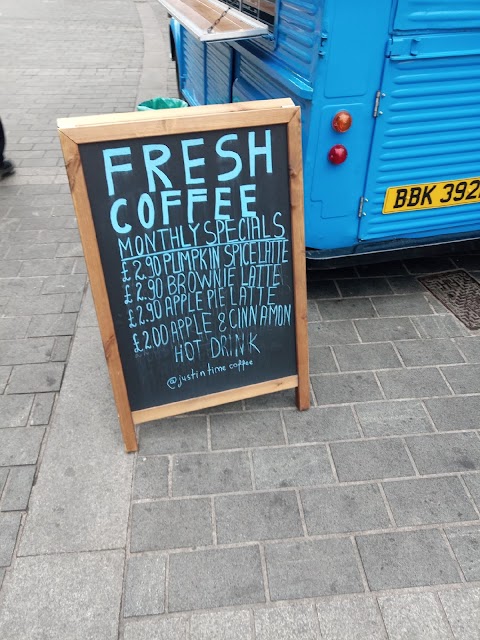 FRESH
COFFEE
MONTHLY SPECIALS
£2.90 PUMPKIN SPICE LATTE
£2.90 BROWNIE LATTE
£2.90 APPLE PIE LATTE
£2.00 APPLE & CINNAMON
HOT DRINK
@justintime coffee
BBK 392